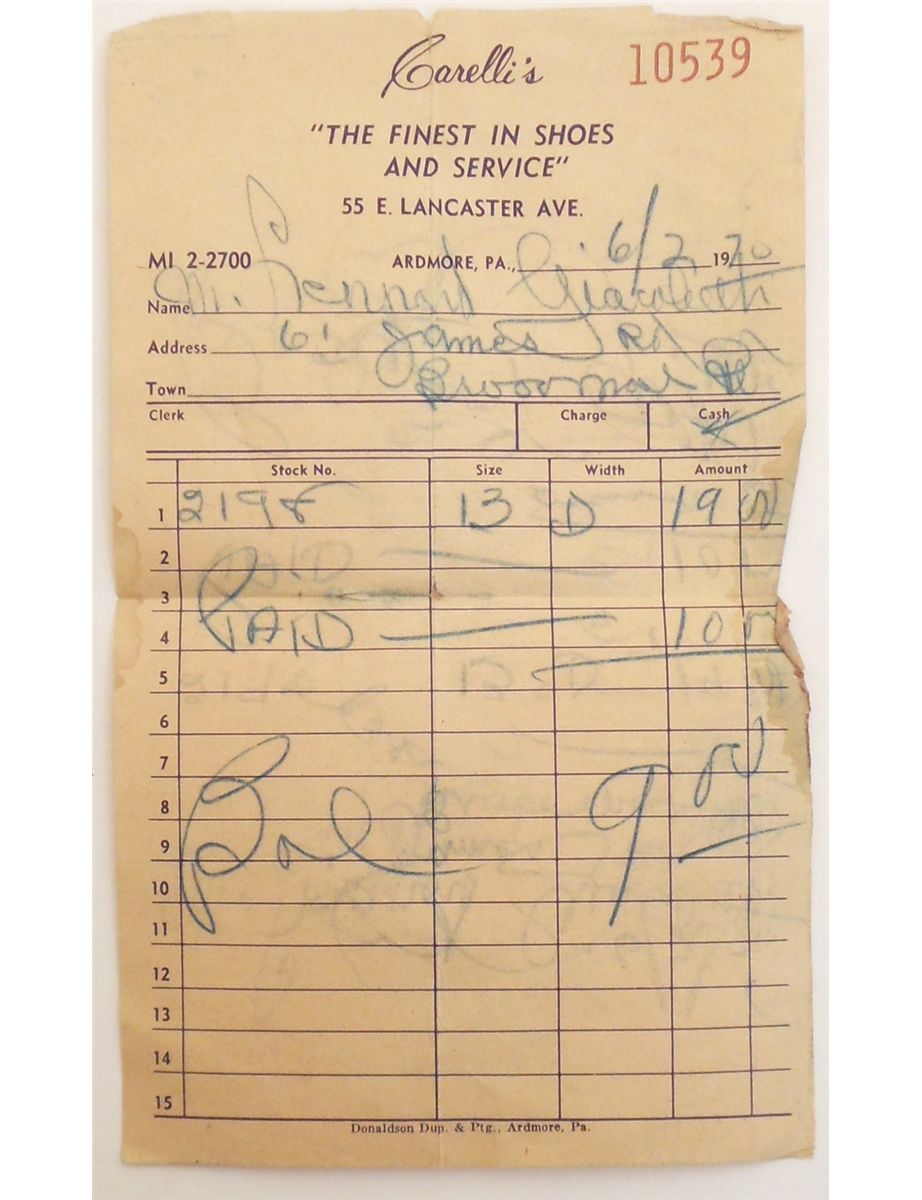 Carelli's 10539
"THE FINEST IN SHOES
AND SERVICE"
55 E. LANCASTER AVE.
MI 2-2700 ARDMORE, PA., 6/2 1970
Name M.
Address 61 James Rd
Town Broomal Pa
Clerk Charge Cash
Stock No. Size Width Amount
1 2198 13 D 19 00
2
3
4 PAID 10 00
5
6
7
8 Bal 9 00
9
10
11
12
13
14
15
Donaldson Dup. & Ptg., Ardmore, Pa.